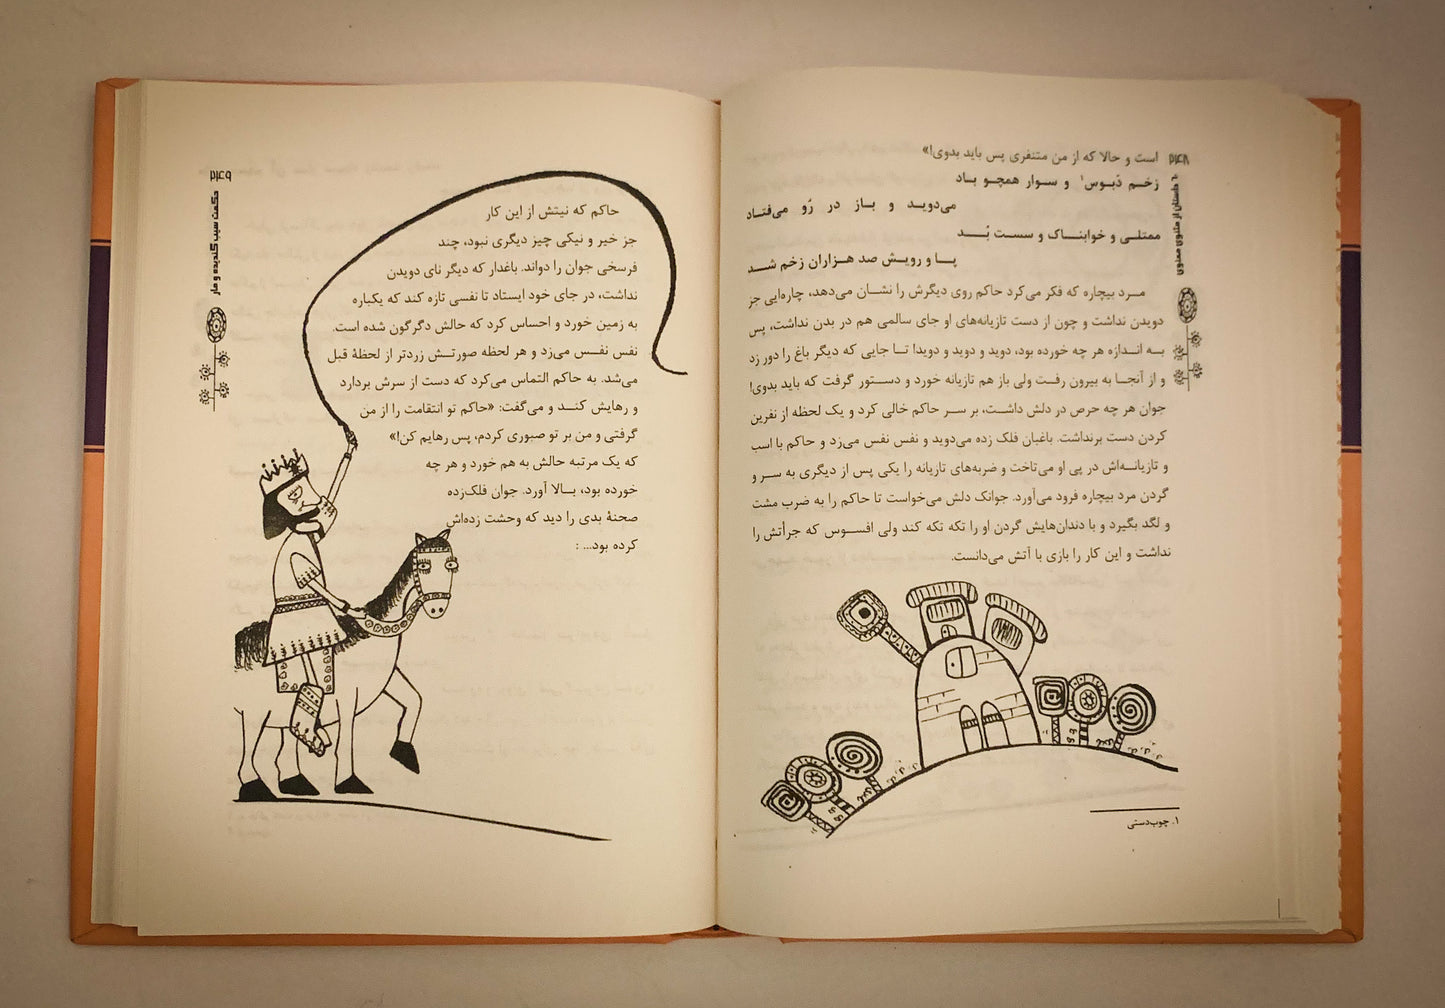 ۲۴۸
۶۰ داستان از مثنوی معنوی
است و حالا که از من متنفری پس باید بدوی!»
زخـم دَبـوس۱ و سـوار همچـو بـاد
می‌دویـد و بـاز در رُو می‌فتـاد
ممتلـی و خوابنـاک و سسـت بُـد
پـا و رویـش صد هـزاران زخم شـد
مـرد بیچـاره که فکر می‌کرد حاکم روی دیگرش را نشـان می‌دهد، چاره‌ایی جز
دویدن نداشت و چون از دست تازیانه‌های او جای سالمی هم در بدن نداشت، پس
بـه انـدازه هر چه خورده بود، دوید و دوید و دوید! تـا جایی که دیگر باغ را دور زد
و از آنجـا به بیرون رفـت ولی باز هم تازیانه خورد و دسـتور گرفت که باید بدوی!
جوان هر چه حرص در دلش داشـت، بر سـر حاکم خالی کرد و یک لحظه از نفرین
کردن دست برنداشت. باغبان فلک زده می‌دوید و نفس نفس می‌زد و حاکم با اسب
و تازیانـه‌اش در پی او می‌تاخت و ضربه‌های تازیانه را یکی پس از دیگری به سـر و
گردن مرد بیچاره فرود می‌آورد. جوانک دلش می‌خواست تا حاکم را به ضرب مشت
و لگد بگیرد و با دندان‌هایش گردن او را تکه تکه کند ولی افسـوس که جرأتش را
نداشت و این کار را بازی با آتش می‌دانست.
۱. چوب‌دستی
۲۴۹
حکمت سیب گندیده و مار
حاکم که نیتش از این کار
جز خیر و نیکی چیز دیگری نبود، چند
فرسخی جوان را دواند. باغدار که دیگر نای دویدن
نداشت، در جای خود ایستاد تا نفسی تازه کند که یکباره
به زمین خورد و احساس کرد که حالش دگرگون شده است.
نفس نفـس می‌زد و هر لحظه صورتـش زردتر از لحظهٔ قبل
می‌شد. به حاکم التماس می‌کرد که دست از سرش بردارد
و رهایش کنـد و می‌گفت: «حاکم تو انتقامت را از من
گرفتی و من بر تو صبوری کردم، پس رهایم کن!»
که یک مرتبه حالش به هم خورد و هر چه
خورده بود، بـالا آورد. جوان فلک‌زده
صحنهٔ بدی را دید که وحشت زده‌اش
کرده بود... :